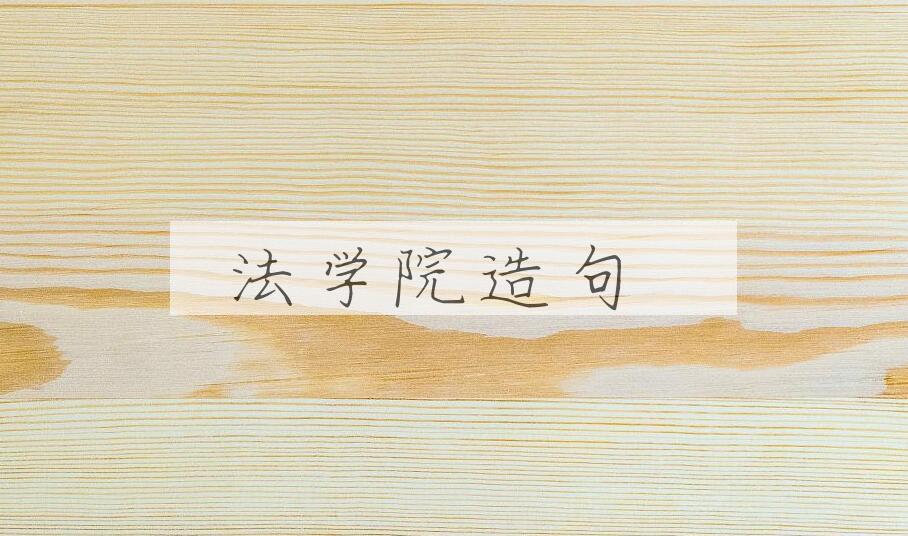 法学院造句